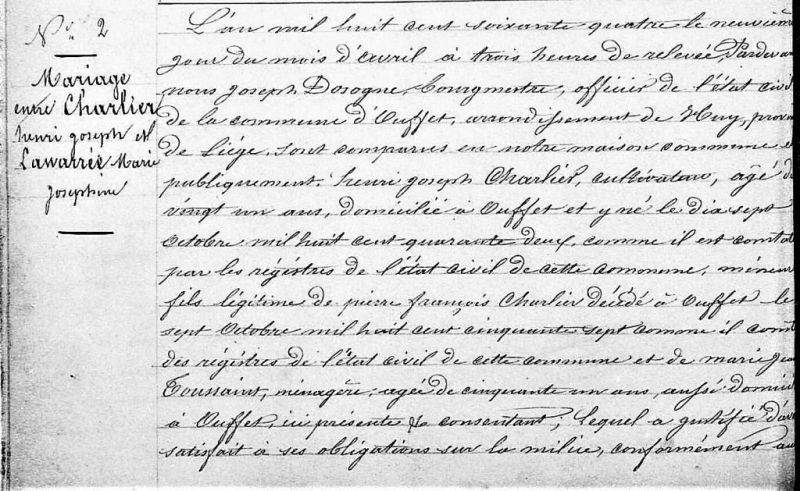 No. 2
Mariage
entre Charlier
henri joseph et
Lawarrée Marie
Josephine
L'an mil huit cent soixante quatre le neuvièm
jour du mois d'avril à trois heures de relevée, Pardeva
nous joseph Dosogne, bourgmestre, officier de l'état civil
de la commune d'Ouffet, arrondissement de Huy, provin
de Liège, sont comparus en notre maison commune e
publiquement, henri joseph Charlier, cultivateur, âgé d
vingt un ans, domicilié à Ouffet et y né le dix sept
Octobre mil huit cent quarante deux, comme il est constat
par les régistres de l'état civil de cette commune, mineur
fils légitime de pierre françois Charlier décédé à Ouffet le
sept Octobre mil huit cent cinquante sept comme il const
des régistres de l'état civil de cette commune et de marie
Toussaint, ménagère, agée de cinquante un ans, aussi domicil
à Ouffet, ici présente & consentant; lequel a justifié d'avoi
satisfait à ses obligations sur la milice, conformément au